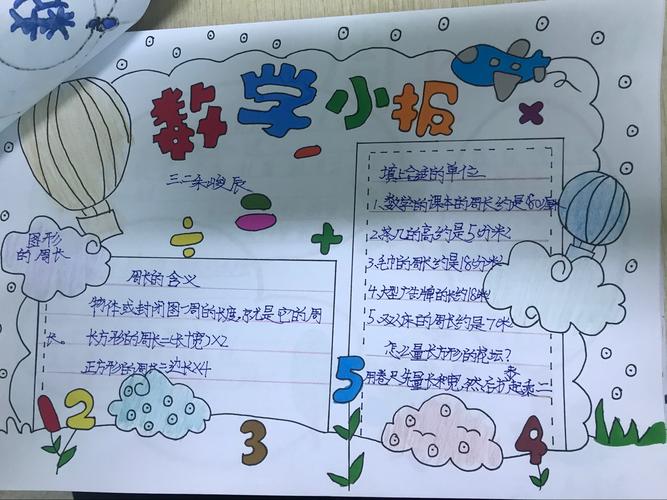 数学小报
三二 朱峻辰
图形
的周长
周长的含义
物体或封闭图一周的长度,就是它的周
长。 长方形的周长=(长+宽)×2
正方形的周长=边长×4
填上合适的单位
1.数学的课本的周长约是80厘米
2.茶几的高约是5分米
3.毛巾的周长约是18分米
4.大型广告牌的长约18米
5.双人床的周长约是70米
怎么量长方形的花坛?
用卷尺先量长和宽,然后 起来
1 2 3 4 5